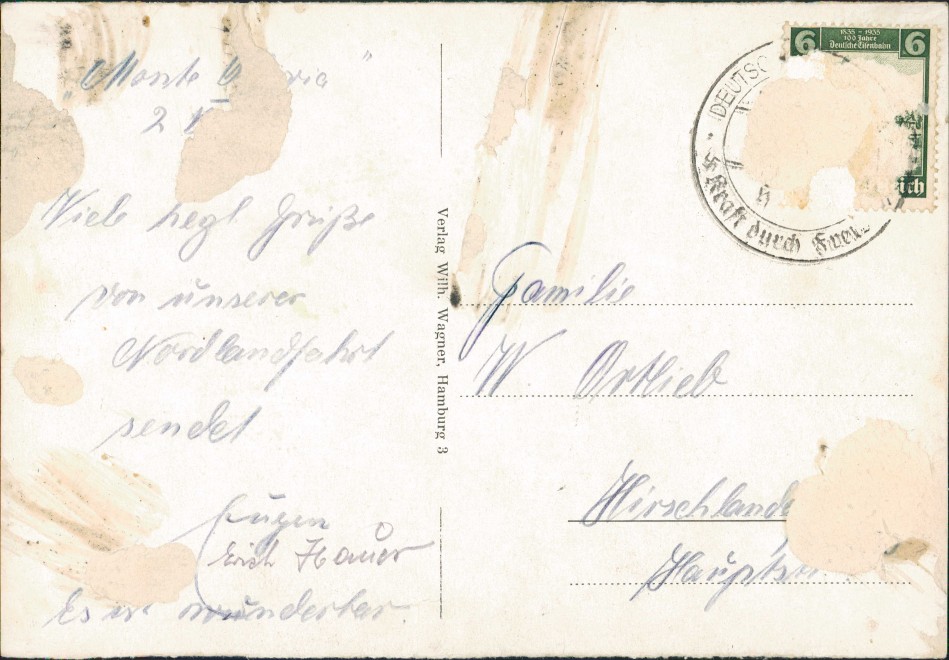 „Monte
2
Viele
Grüße
von unserer
Nordlandfahrt
sendet
Eugen
Erich
Es ist wunderbar.
Verlag Wilh. Wagner, Hamburg 3
6 1835 - 1935 6
100 Jahre
Deutsche Eisenbahn
ich
DEUTSC
Kraft durch Freu
Familie
W. Ortlieb
Hirschlande
Hauptstr